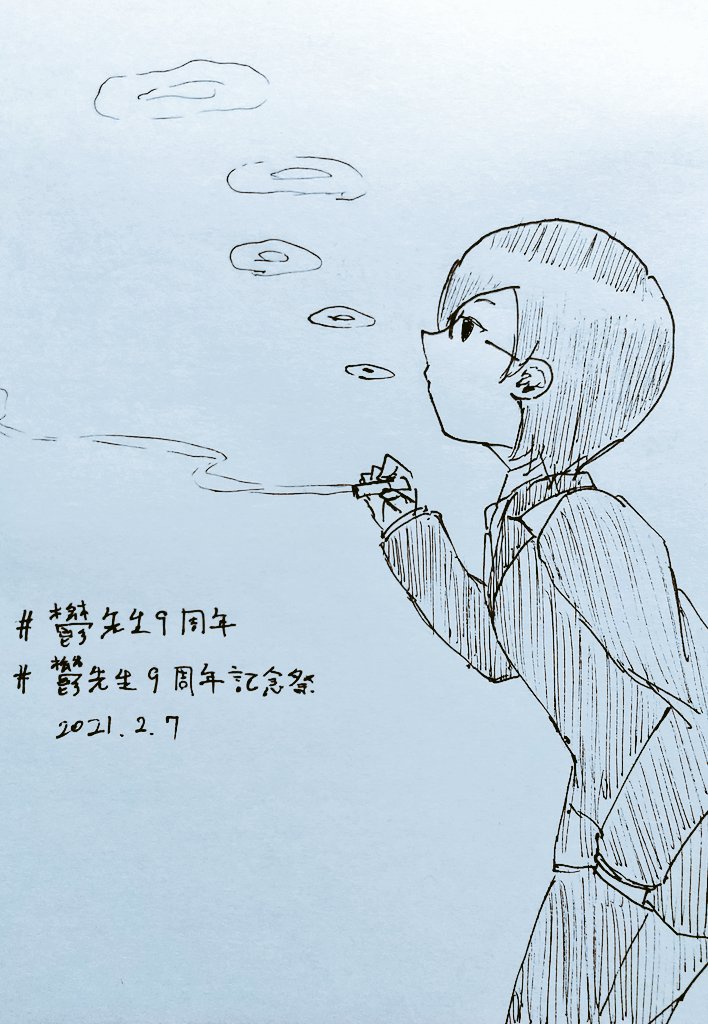 # 鬱先生9周年
# 鬱先生9周年記念祭
2021.2.7